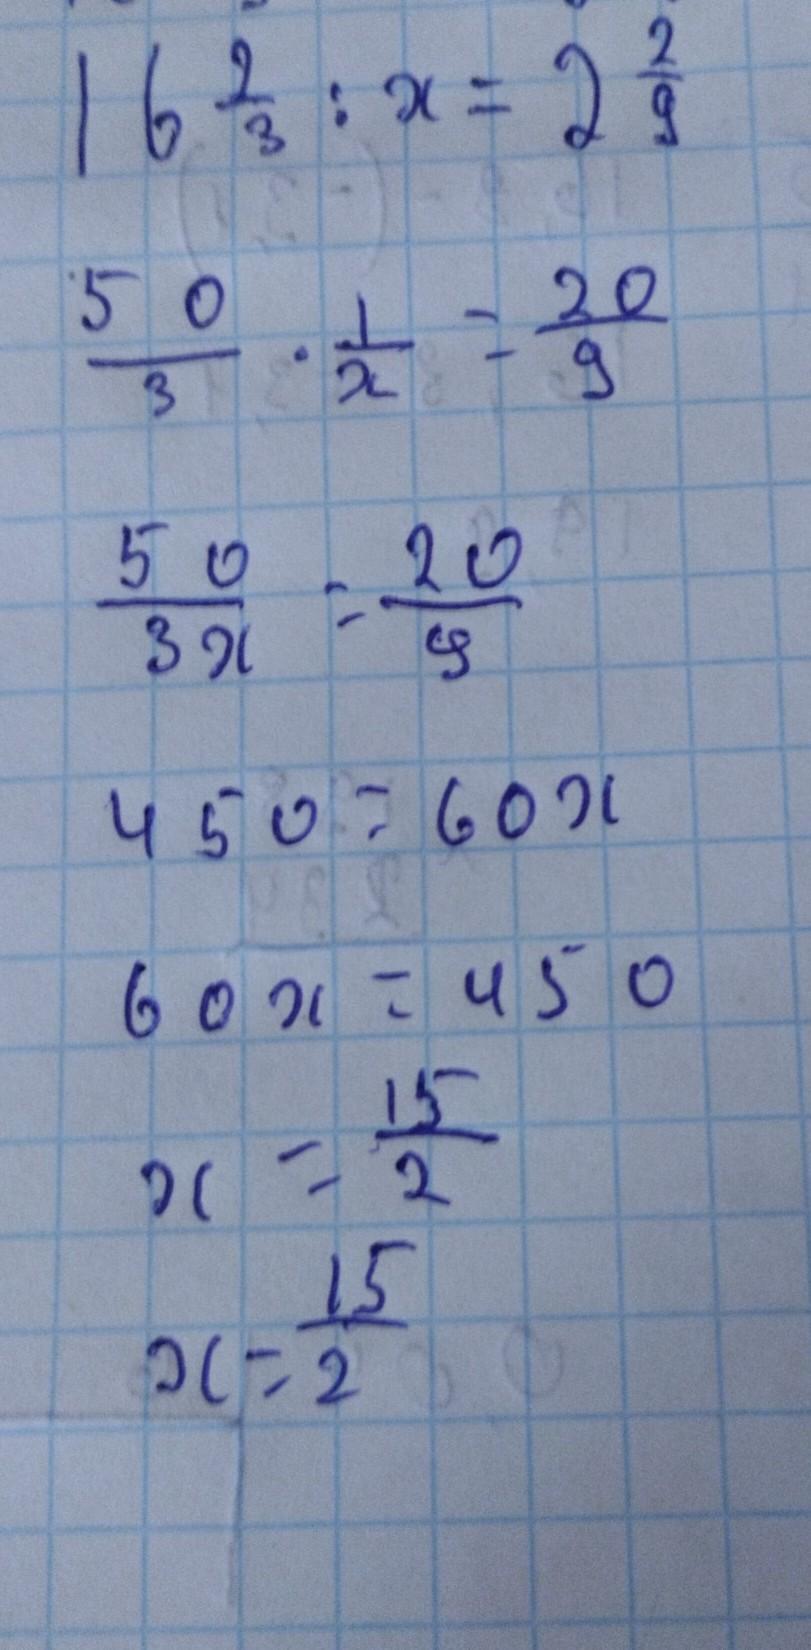 16 2/3 : x = 2 2/9
50/3 · 1/x = 20/9
50/3x = 20/9
450 = 60x
60x = 450
x = 15/2
x = 15/2